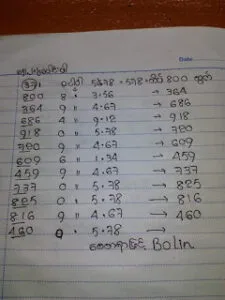 Date
(37) ဝပါဝါ 5.78 = 578 800 ထွက်
800 8 " 3.56 → 364
364 9 " 4.67 → 686
686 4 " 9.12 → 918
918 0 " 5.78 → 720
720 9 " 4.67 → 609
609 6 " 1.34 → 459
459 9 " 4.67 → 737
737 0 " 5.78 → 825
825 0 " 5.78 → 816
816 9 " 4.67 → 460
460 0 " 5.78 →
Bolin